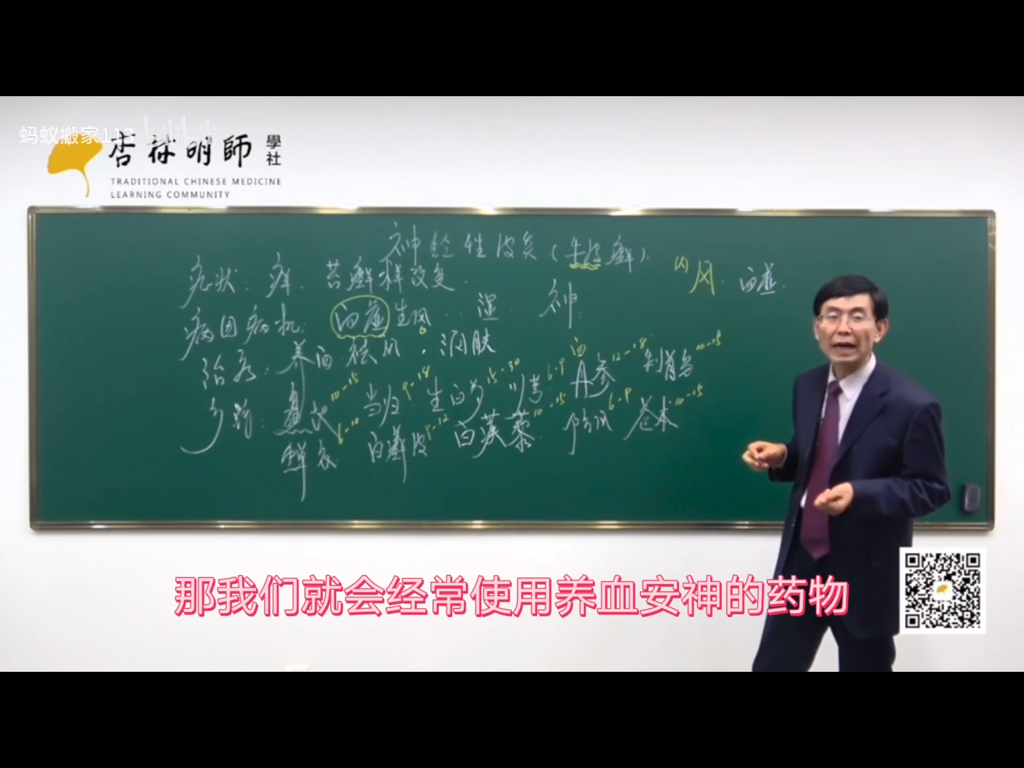 蚂蚁搬家11
杏林明師 學社
TRADITIONAL CHINESE MEDICINE
LEARNING COMMUNITY
神经性皮炎(牛皮癣).
内风.血虚.
症状:痒.苔藓样改变.
病因病机:血虚生风..湿 神:
治疗:养血祛风.润肤
白
方药:熟地10-15 当归9-18 生白芍15-30 川芎6-9 丹参12-18 制首乌10-15
蝉衣6-10 白鲜皮9-12 白蒺藜10-15 防风6-9 苍术10-15
那我们就会经常使用养血安神的药物